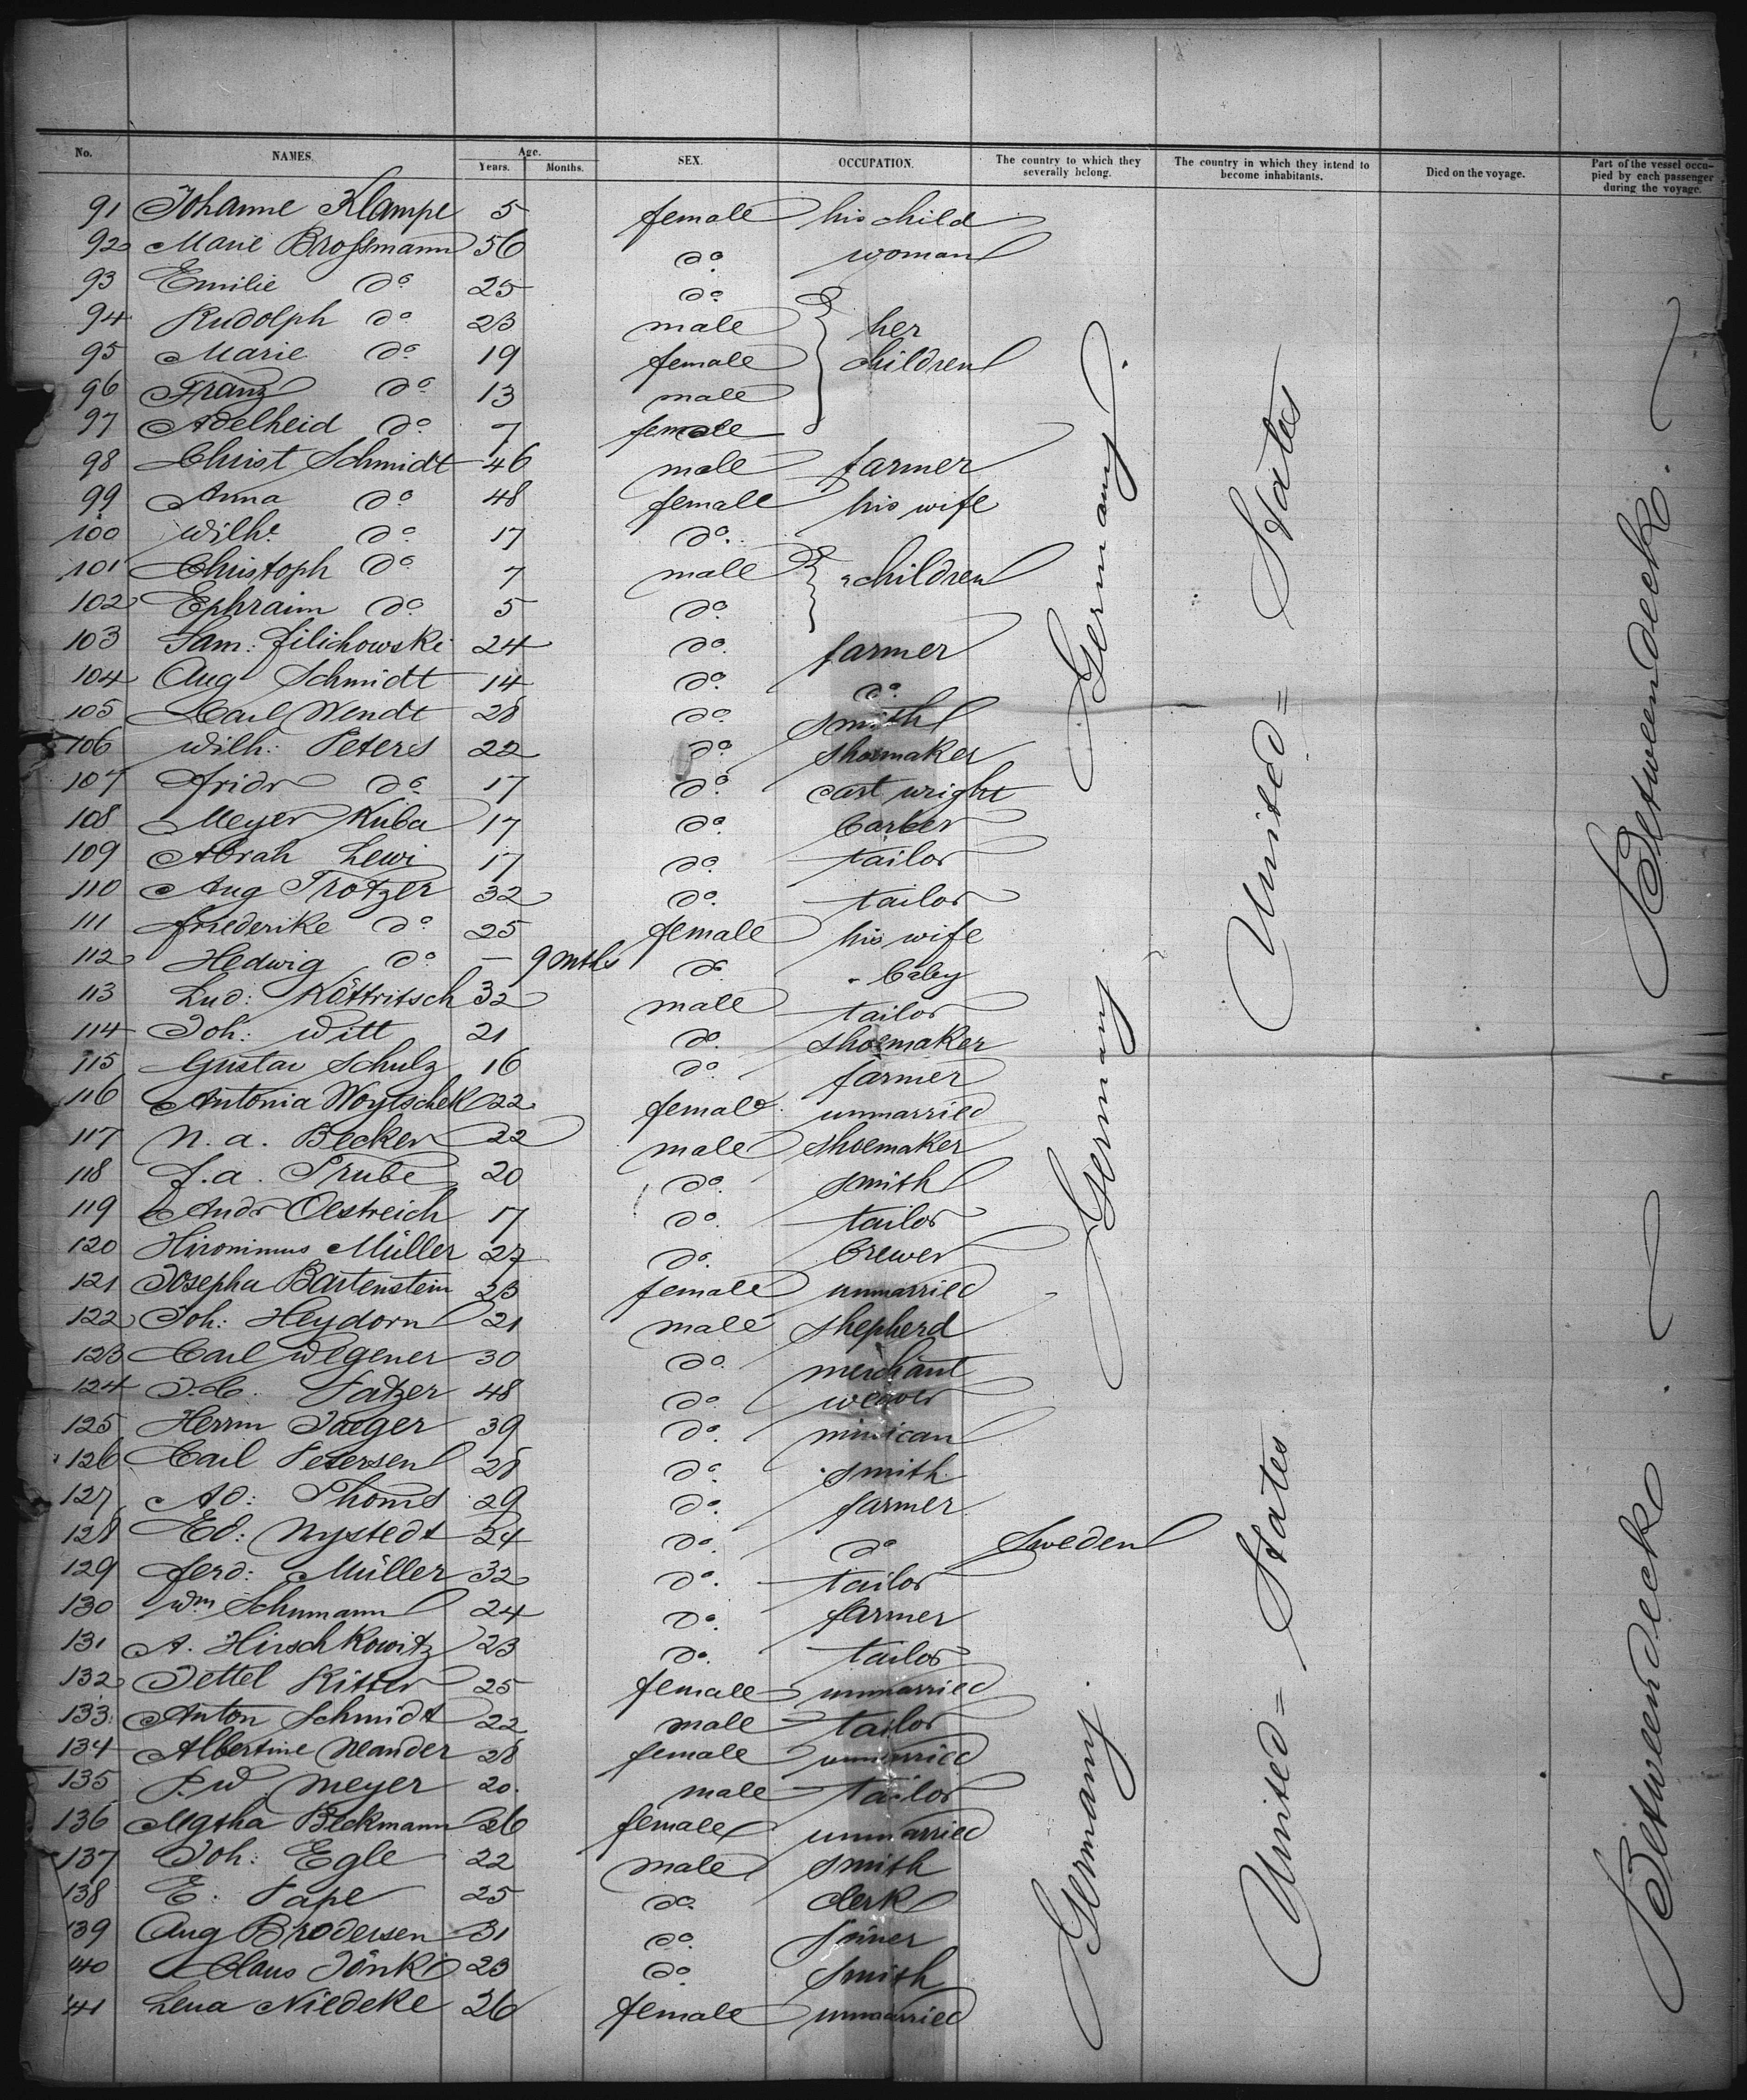 No. NAMES. Age. Years. Months. SEX. OCCUPATION. The country to which they severally belong. The country in which they intend to become inhabitants. Died on the voyage. Part of the vessel occupied by each passenger during the voyage.
91 Johanne Klampe 5 female his child
92 Marie Broßmann 56 do. woman
93 Emilie do 25 do.
94 Rudolph do 23 male her
95 Marie do 19 female children
96 Franz do 13 male
97 Adelheid do 7 female
98 Christ Schmidt 46 male farmer
99 Anna do 48 female his wife
100 Wilhe do 17 do.
101 Christoph do 7 male children
102 Ephraim do 5 do.
103 Sam: Filichowski 24 do. farmer
104 Aug Schmidt 14 do. do.
105 Carl Wendt 28 do. smith
106 Wilh: Peters 22 do. shoemaker
107 Fridr do 17 do. cart wright
108 Meyer Kuba 17 do. barber
109 Abrah Lewi 17 do. tailor
110 Aug Trotzer 32 do. tailor
111 Friederike do 25 female his wife
112 Hedwig do — 9 mths do. baby
113 Lud: Köttritsch 32 male tailor
114 Joh: Witt 21 do. shoemaker
115 Gustav Schulz 16 do. farmer
116 Antonia Woytschek 22 female unmarried
117 N. a. Becker 22 male shoemaker
118 F. a. Trube 20 do. smith
119 Andr Oestreich 17 do. tailor
120 Hironimus Müller 27 do. brewer
121 Josepha Bartenstein 23 female unmarried
122 Joh: Heydorn 21 male shepherd
123 Carl Wegener 30 do. merchant
124 Fatzer 48 do. weaver
125 Herrm Jaeger 39 do. musican
126 Carl Petersen 28 do. smith
127 Ad: Thoms 29 do. farmer
128 Ed: Nystedt 24 do. do Sweden
129 Ferd: Müller 32 do. tailor
130 Wm Schumann 24 do. farmer
131 A. Hirschkowitz 23 do. tailor
132 Jettel Ritter 25 female unmarried
133 Anton Schmidt 22 male tailor
134 Albertine Neander 28 female unmarried
135 J. W Meyer 20 male tailor
136 Agtha Beckmann 26 female unmarried
137 Joh: Egle 22 male smith
138 E: Pape 25 do. clerk
139 Aug Brodersen 31 do. joiner
40 Claus Jönk 23 do. smith
41 Lena Niedeke 26 female unmarried
Germany.
Germany
Germany.
United= States
United= States
Betweendecks.
Betweendecks.